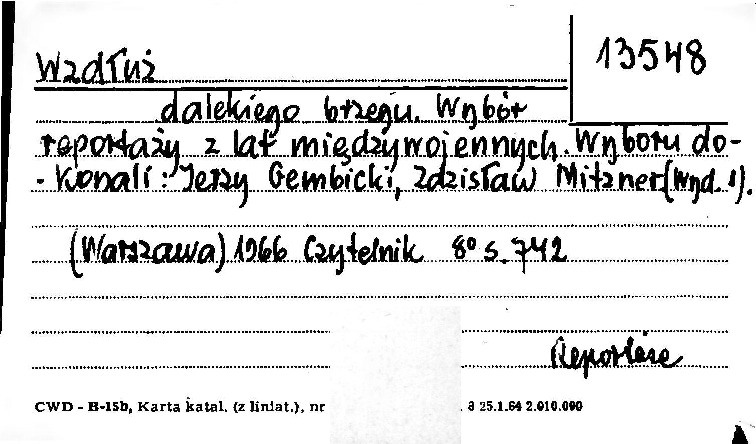 13548
Wzdłuż
dalekiego brzegu. Wybór
reportaży z lat międzywojennych. Wyboru do-
- konali: Jerzy Gembicki, Zdzisław Mitzner (Wyd. 1).
(Warszawa) 1966 Czytelnik 8° s. 742
Reportaże
CWD - B-15b, Karta katal. (z liniat.), nr . 8 25.1.64 2.010.000